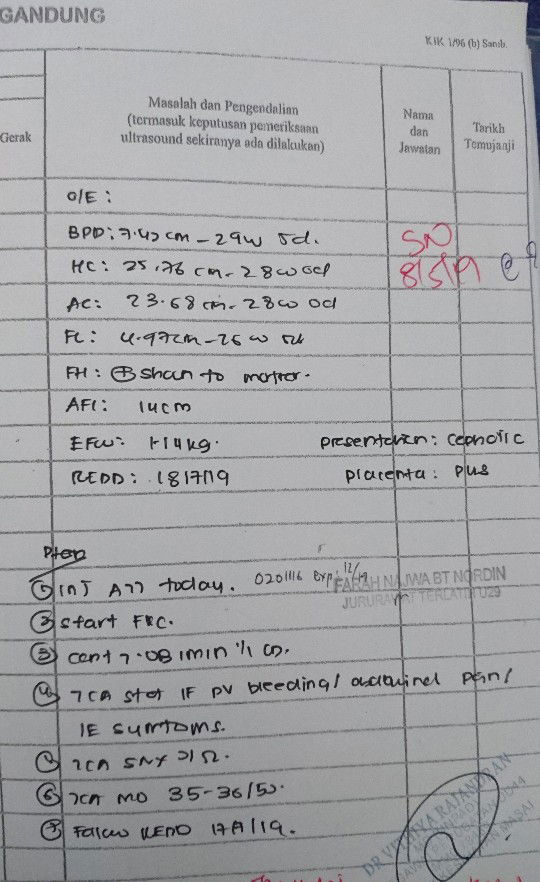 GANDUNG
KIK 1/96 (b) Samb.
Gerak
Masalah dan Pengendalian
(termasuk keputusan pemeriksaan
ultrasound sekiranya ada dilakukan)
Nama
dan
Jawatan
Tarikh
Temujanji
O/E :
BPD: 7.42 cm - 29w 5d.
SN
HC: 25.76 cm - 28w 0d
8/5/19
AC: 23.68 cm - 28w 0d
FL: 4.97cm - 26w
FH: ⊕ shown to mother.
AFI: 14cm
EFW: 1.14kg. presentation: cephalic
REDD: 18/7/19 placenta: pus
Plan
① inj ATT today. 0201116 Exp: 12/19
FARAH NAJWA BT NORDIN
JURURAWAT TERLATIH U29
② start FKC.
③ cont T. OB 1min
④ TCA stat IF PV bleeding/ abdominal pain/
IE sumtoms.
TCA SN
⑥ TCA MO 35-36/52.
⑦ Follow REDD 17/7/19.